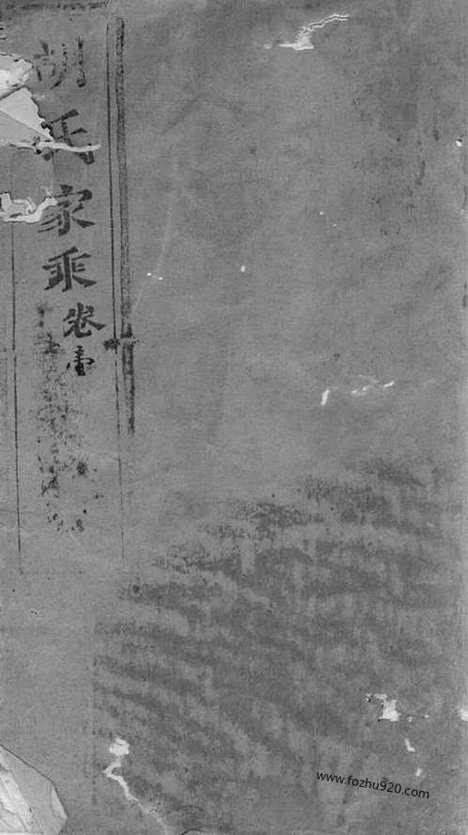 胡氏家乘卷壹
www.fozhu920.com